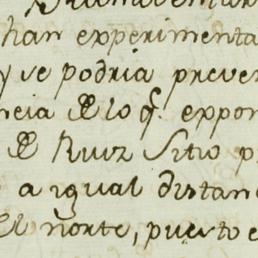 han experimenta
y se podria preve
ncia de lo q. expon
de Ruiz Sitio p
a igual distan
el norte, puerto e